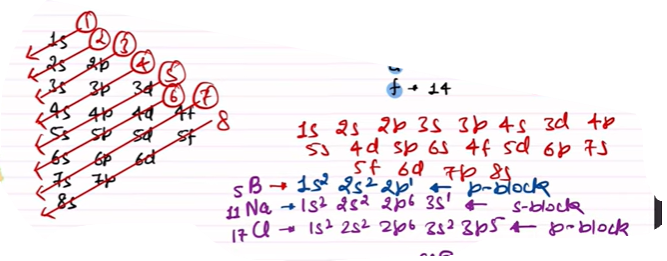 1 2 3 4 5 6 7 8
1s
2s 2p
3s 3p 3d
4s 4p 4d 4f
5s 5p 5d 5f
6s 6p 6d
7s 7p
8s
f → 14
1s 2s 2p 3s 3p 4s 3d 4p
5s 4d 5p 6s 4f 5d 6p 7s
5f 6d 7p 8s
5B → 1s² 2s² 2p¹ ← p-block
11Na → 1s² 2s² 2p6 3s¹ ← s-block
17Cl → 1s² 2s² 2p6 3s² 3p5 ← p-block